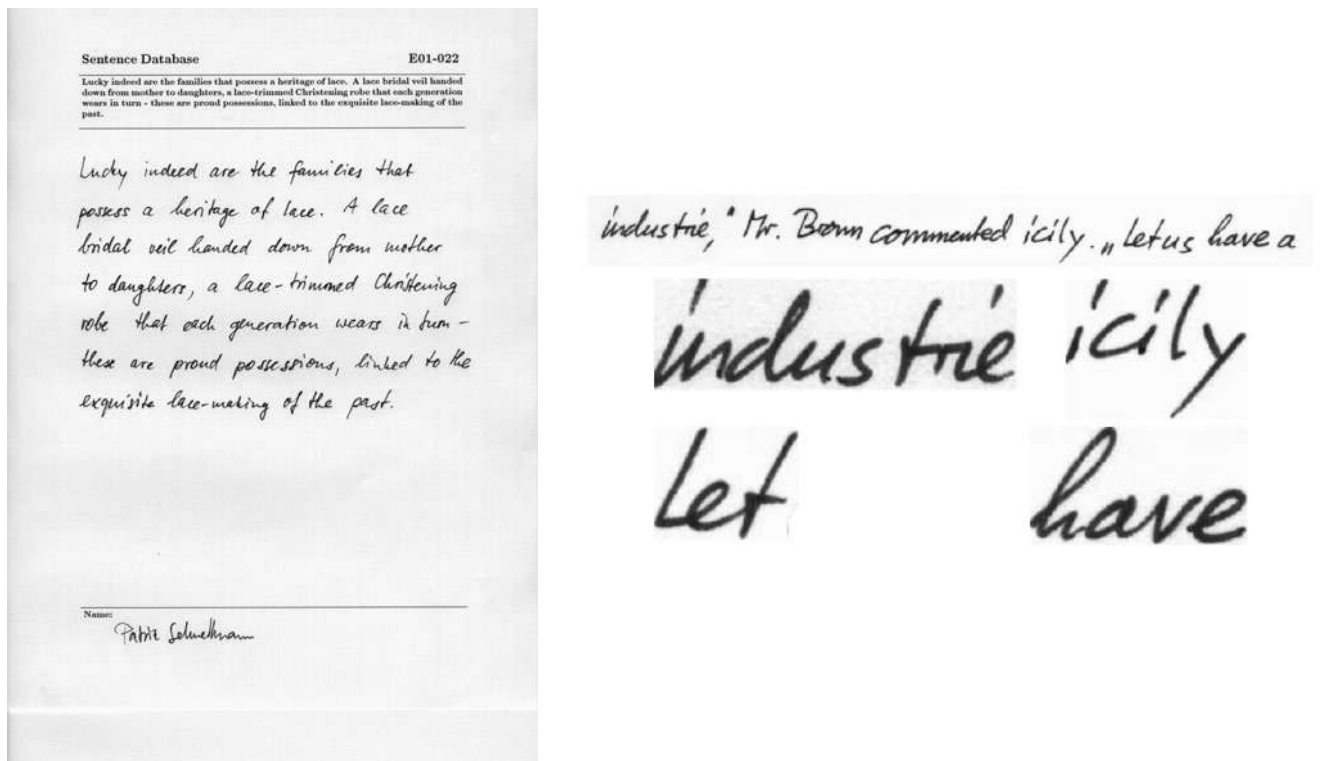 Sentence Database E01-022
Lucky indeed are the families that possess a heritage of lace. A lace bridal veil handed
down from mother to daughters, a lace-trimmed Christening robe that each generation
wears in turn - these are proud possessions, linked to the exquisite lace-making of the
past.
Lucky indeed are the families that
possess a heritage of lace. A lace
bridal veil handed down from mother
to daughters, a lace-trimmed Christening
robe that each generation wears in turn -
these are proud possessions, linked to the
exquisite lace-making of the past.
Name:
industrie," Mr. Brown commented icily. „Let us have a
industrie icily
Let have